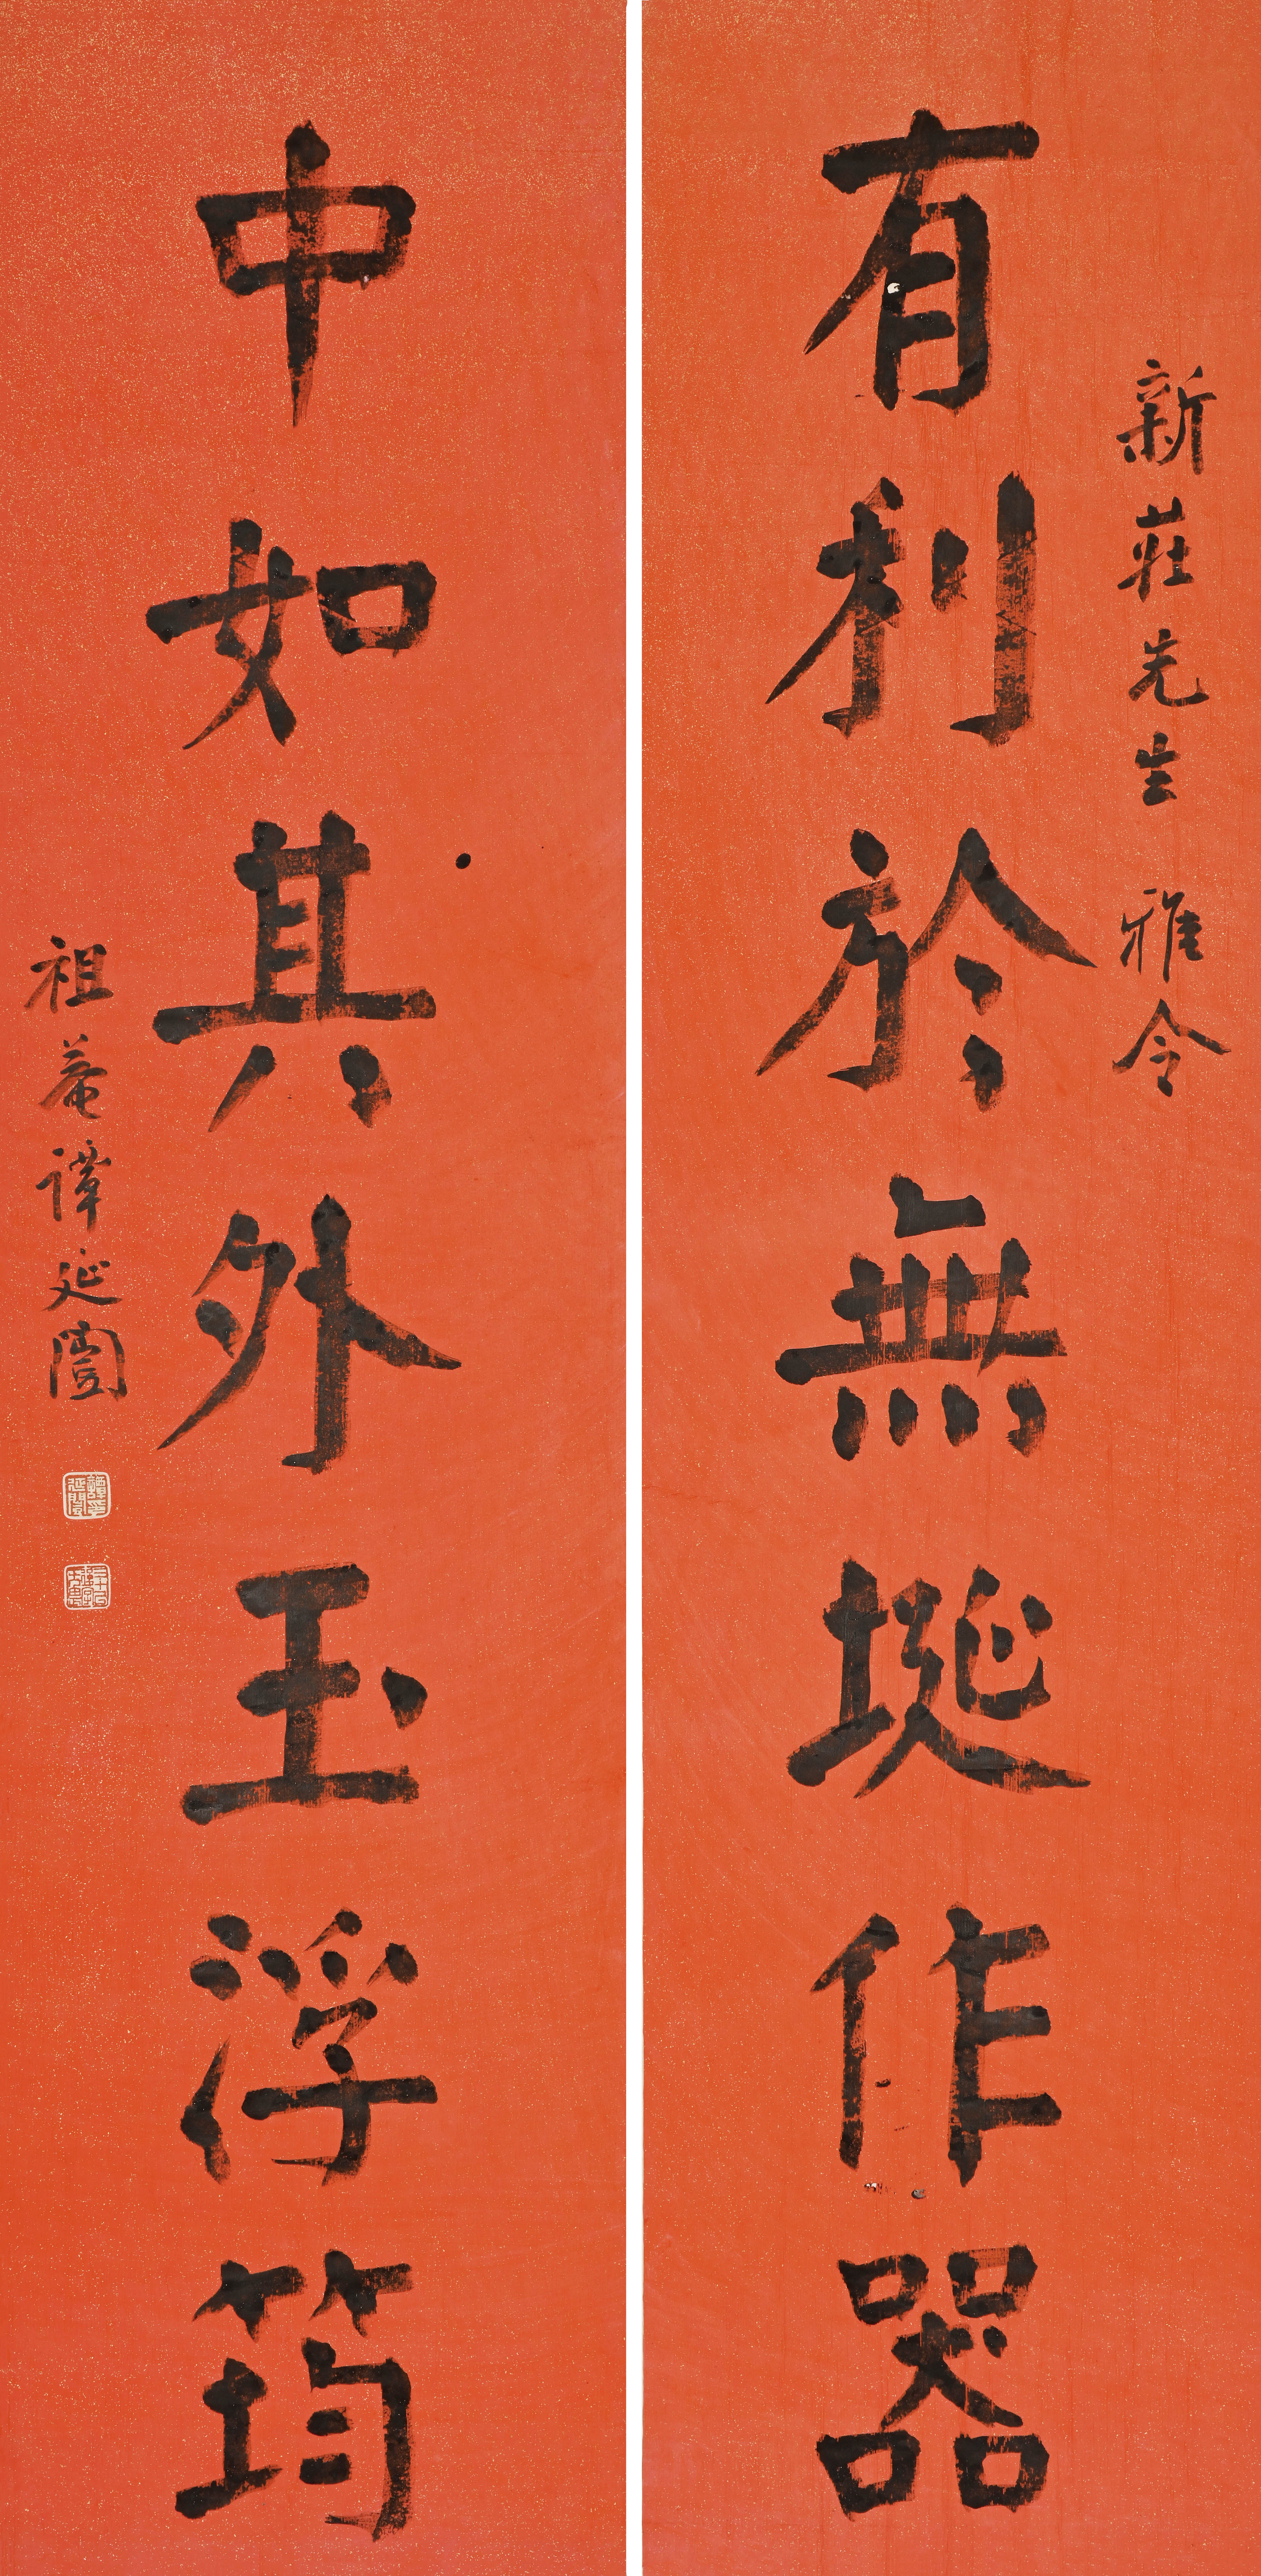 新莊先生 雅令
有利於無埏作器
中如其外玉浮筠
祖菴譚延闓
譚延闓印